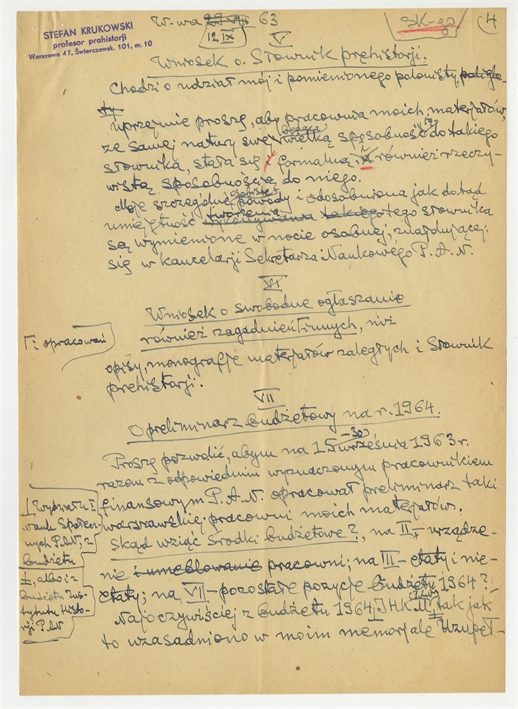 STEFAN KRUKOWSKI
profesor prehistorji
Warszawa 47, Świerczewsk. 101, m. 10
W-wa 63
12 IX
Sk-ego
4
V
Wniosek o Słownik prehistorji.
Chodzi o udział mój i pomienionego polonisty
Uprzejmie proszę, aby pracownia moich materjałów,
ze samej natury swej wielką sposobność do takiego
słownika, stała się formalną, również rzeczy-
wistą sposobnością do niego.
Moje szczególne powody i odosobniona jak dotąd
umiejętność tworzenia tego słownika
są wymienione w nocie osobnej, znajdującej
się w kancelarji Sekretarza Naukowego P.A.N.
VI
Wniosek o swobodne ogłaszanie
również zagadnień innych, niż
Γ i opracowań
opisy, monografje materjałów zaległych i Słownik
prehistorji.
VII
O preliminarz budżetowy na r. 1964.
Proszę pozwolić, abym na 15-30 września 1963 r.
razem z odpowiednim wyznaczonym pracownikiem
finansowym P.A.N. opracował preliminarz taki
warszawskiej pracowni moich materjałów.
Skąd wziąć środki budżetowe?, na II – urządze-
nie i umeblowanie pracowni; na III – etaty i nie-
etaty; na VII – pozostałe pozycje budżetu 1964?
Najoczywiściej z budżetu 1964 IHKM, tak jak
to uzasadniono w moim memorjale Uzupeł-
Wydział I
Nauk Społecz-
nych PAN, z
budżetu
albo i z
budżetu Ins-
tytutu Histo-
rji PAN